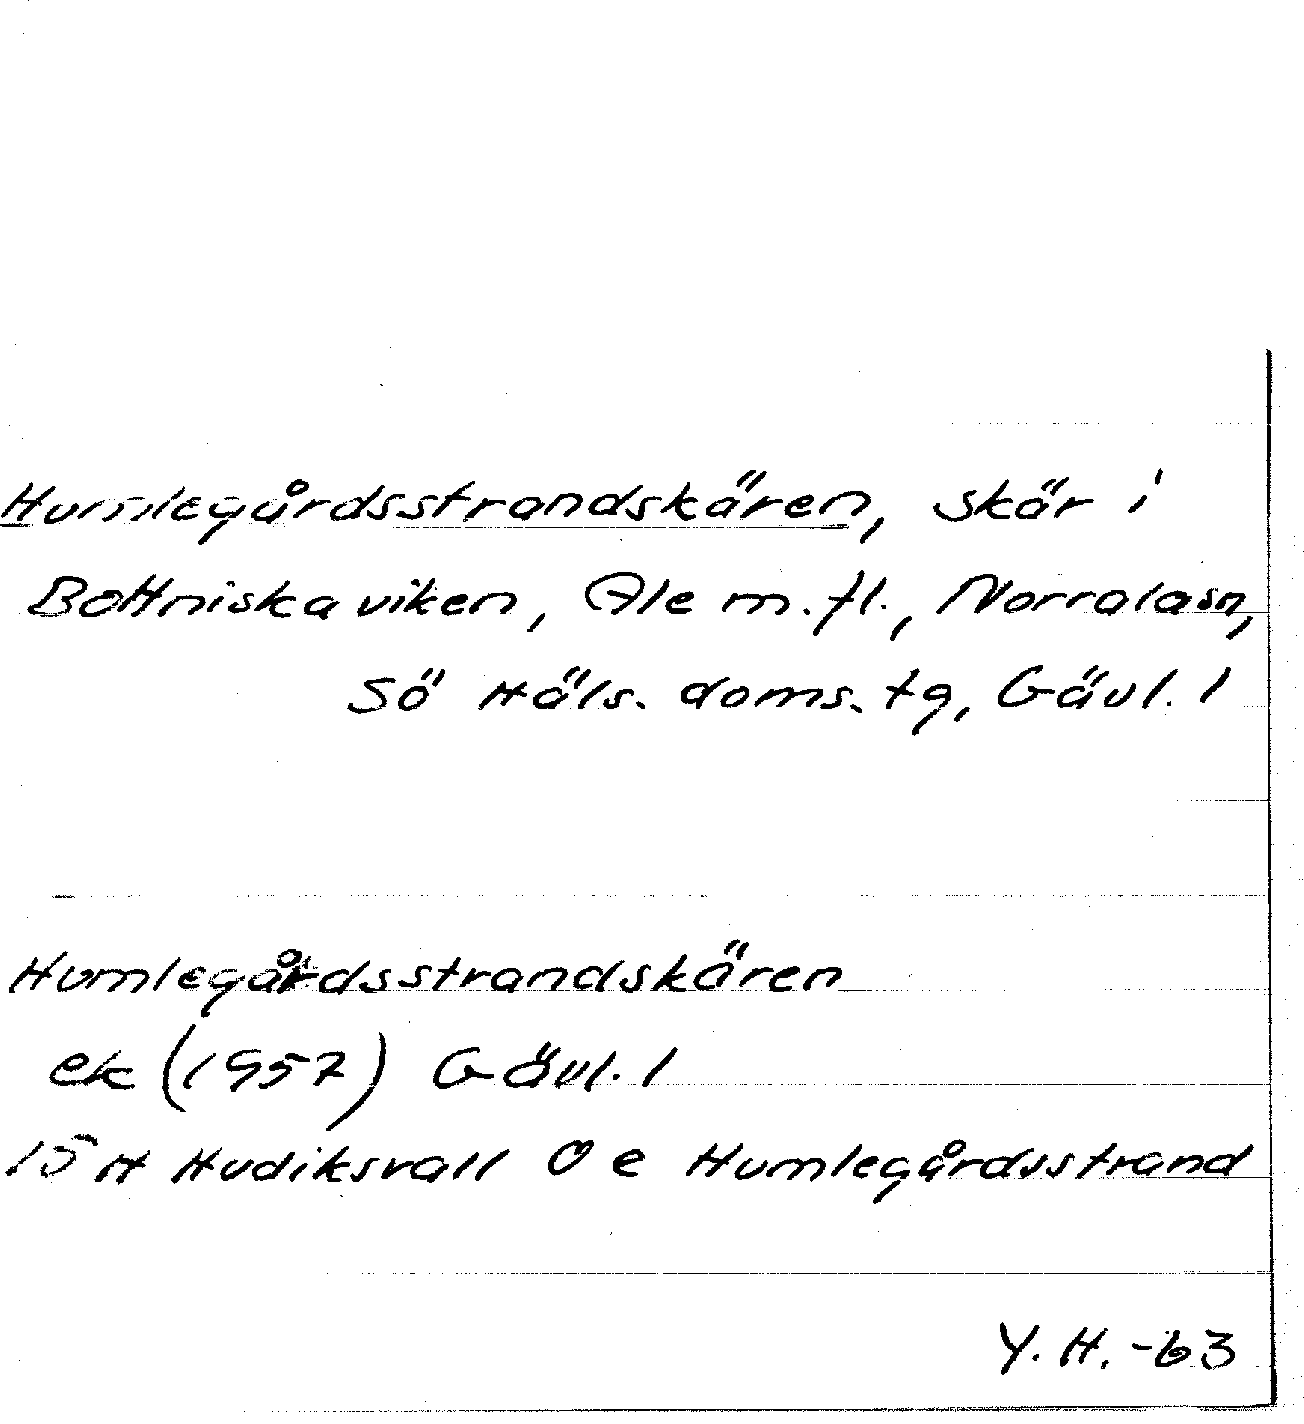 Humlegårdsstrandskären, skär i
Bottniska viken, Ale m.fl., Norralasn,
Sö Häls. doms. tg, Gävl. l
Humlegårdsstrandskären
ek (1957) Gävl. l
15 H Hudiksvall O e Humlegårdsstrand
Y. H. -63